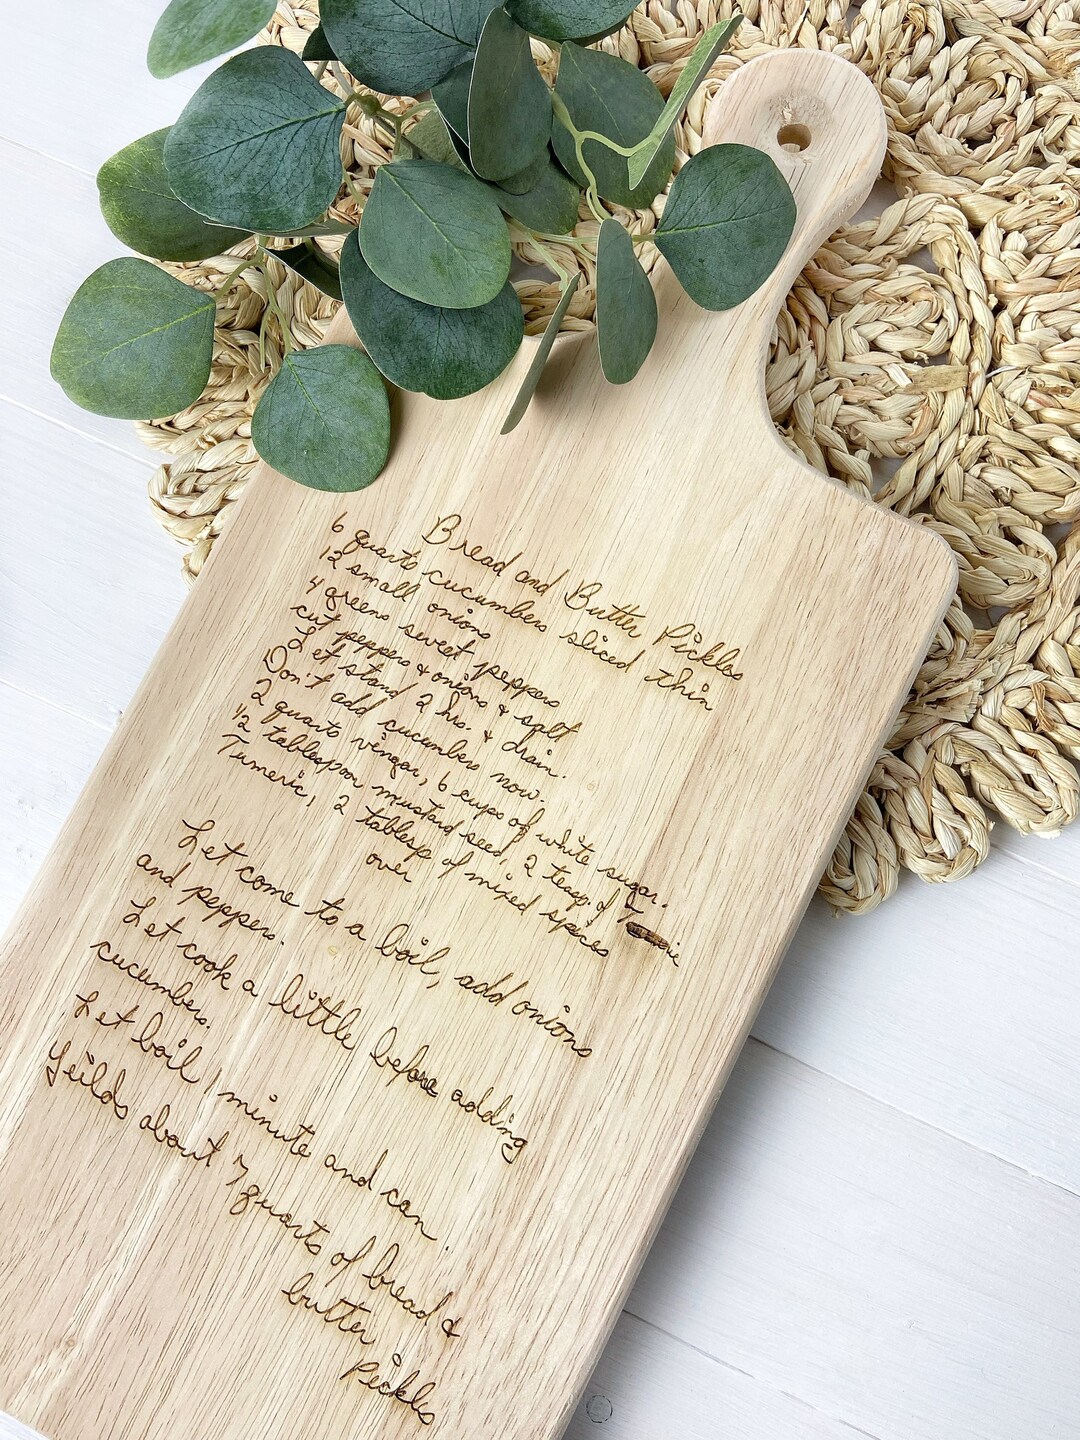 Bread and Butter Pickles
6 quarts cucumbers sliced thin
12 small onions
4 greens sweet peppers
cut peppers & onions & split
Let stand 2 hrs. & drain.
Don't add cucumbers now.
2 quarts vingar, 6 cups of white sugar.
1/2 tablespoon mustard seed, 2 teasp. of
Tumeric, 2 tablesp of mixed spices
over
Let come to a boil, add onions
and peppers.
Let cook a little before adding
cucumbers.
Let boil 1 minute and can.
Yeilds about 7 quarts of bread &
butter
Pickles